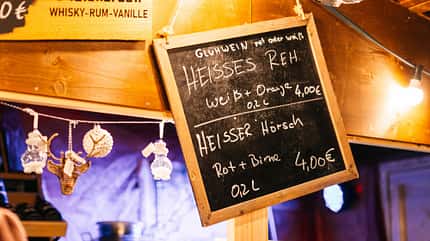 €
WHISKY-RUM-VANILLE
GLÜHWEIN rot oder weiß
HEISSES REH
Weiß + Orange 4,00€
0,2L
HEISSER Hörsch
Rot + Birne 4,00€
0,2L